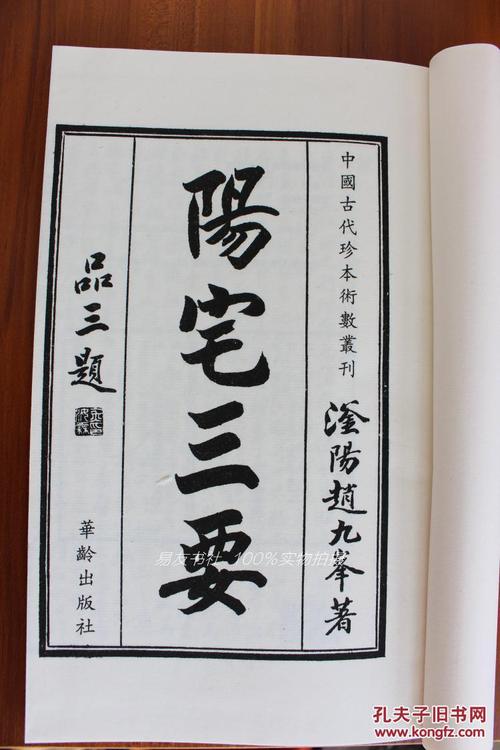 中國古代珍本術數叢刊
滏陽趙九峯著
陽宅三要
品三題
華齡出版社
易友书社 100%实物拍摄
孔夫子旧书网
www.kongfz.com